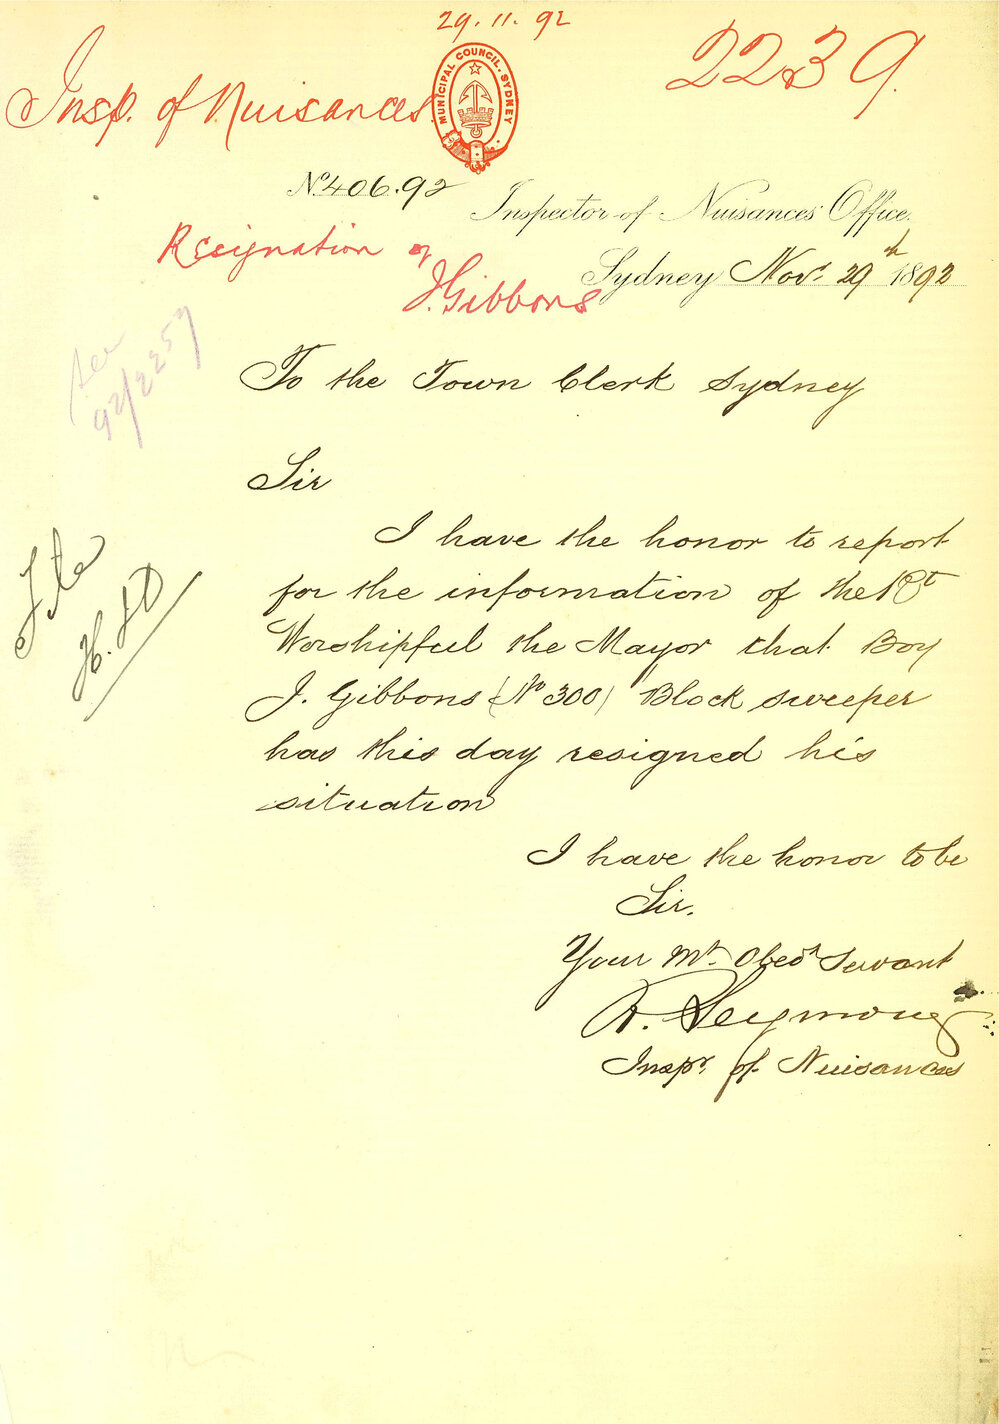 29.11.92
2239.
Insp. of Nuisances
MUNICIPAL COUNCIL. SYDNEY
No. 406.92
Inspector of Nuisances' Office.
Resignation of
J. Gibbons
Sydney Novr. 29th 1892
see
92/2257
To the Town Clerk Sydney
Sir
I have the honor to report
for the information of the Rt
Worshipful the Mayor that Boy
J. Gibbons (No 300) Block sweeper
has this day resigned his
situation
File
I have the honor to be
Sir.
Your Mt. Obedt Servant
R. Seymour
Inspr. of Nuisances